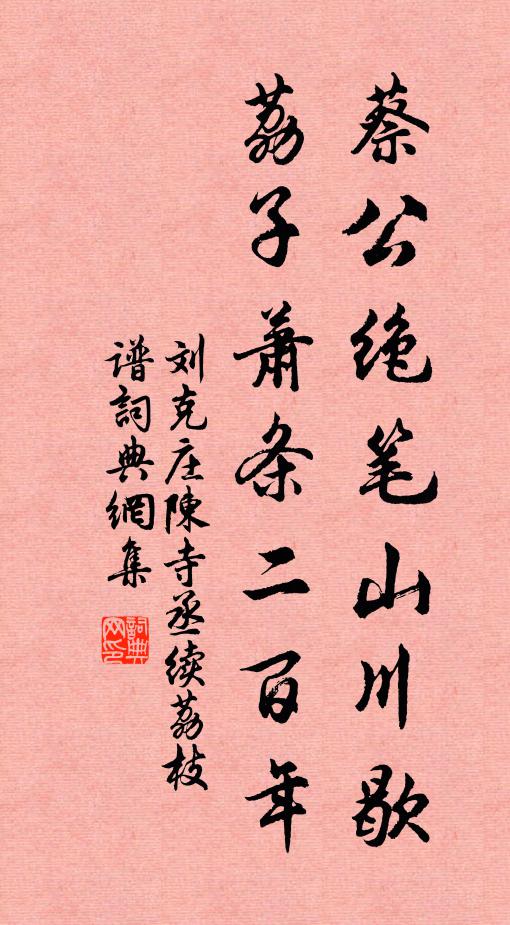 蔡公绝笔山川歇
荔子萧条二百年
刘克庄陳寺丞续荔枝
谱詞典網集
詞典网印